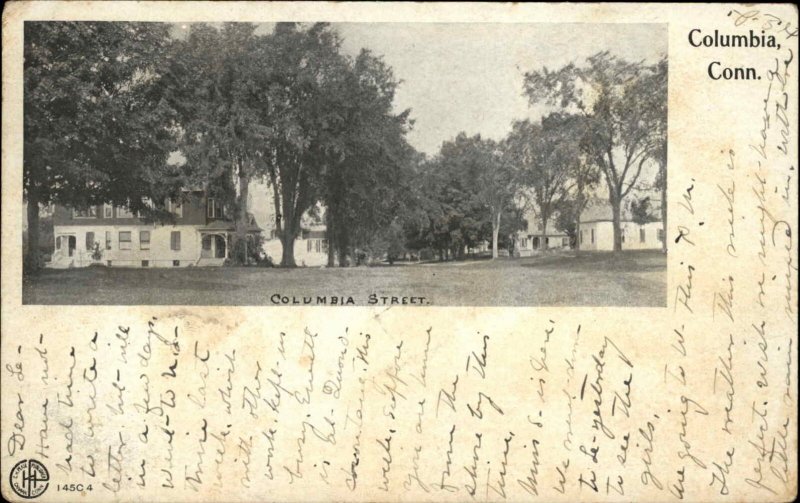 Columbia,
Conn.
COLUMBIA STREET.
145C4
Dear
Have not
had time
to write a
letter but will
in a few days.
Went to
last
week, which
with other
work, kept us
busy.
is at
this
week, suppose
you are home
from the
shore by this
time,
Miss S- is here,
we went down
to yesterday
to see the
girls,
going to W- this P.M.
The weather this week is
perfect. Wish we might have
mixed in.